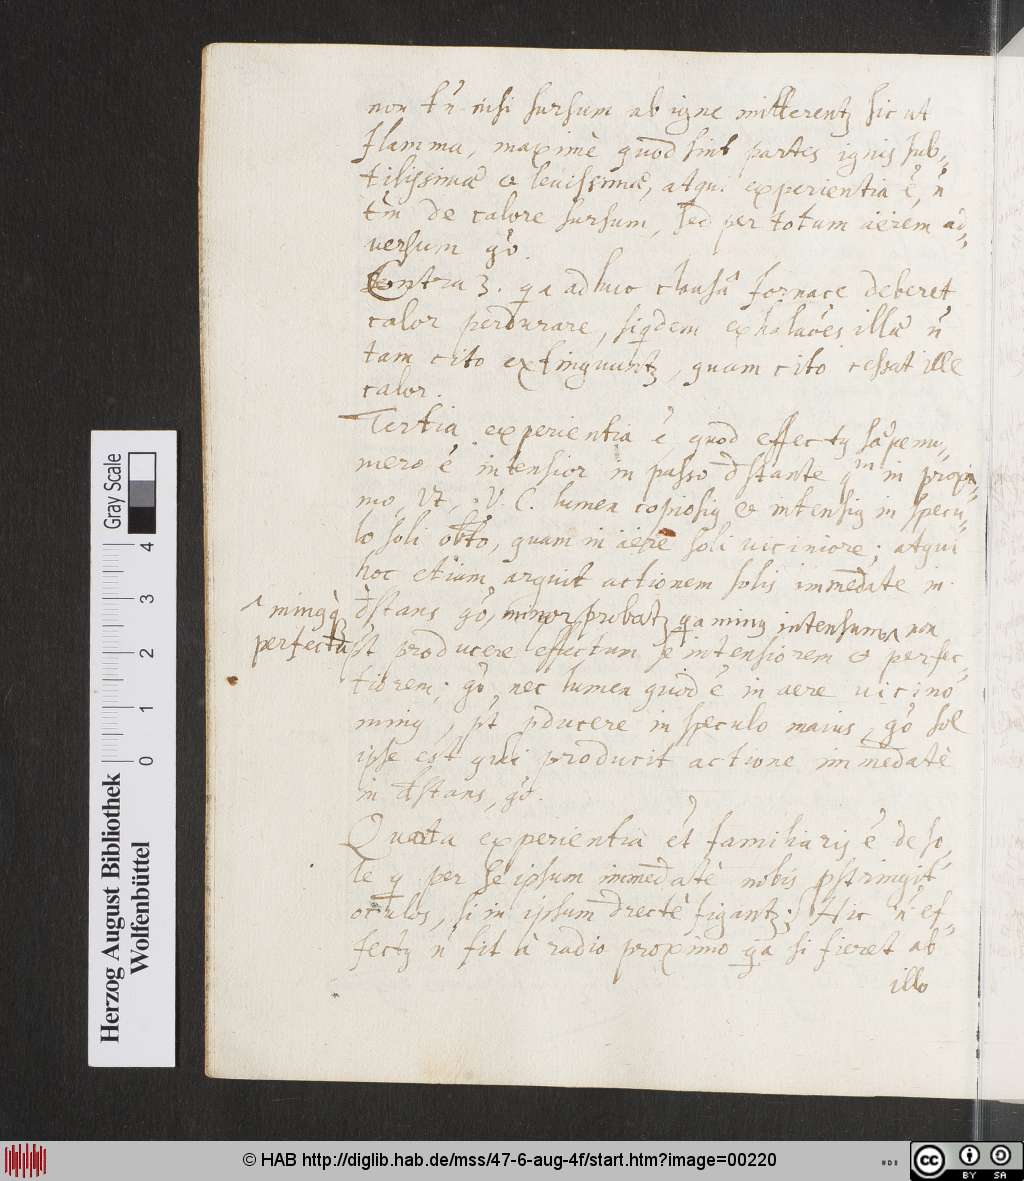 non tñ nisi sursum ab igne mitterentʒ sicut
flamma, maximè quod sint partes ignis sub„
tilissimæ & levissimæ, atqui experientia ē, ñ
tm̄ de calore sursum, sed per totum aërem ad„
versum gô.
Contra 3. qa adhuc clausâ fornace deberet
calor perdurare, siqdem exhalaōes illæ ñ
tam cito extinguuntʒ, quam cito cessat ille
calor.
Tertia experientia ē quod effectꝯ sæpenu„
mero ē intensior in passo dstante qm in proxi„
mo, Vt, V. C. lumen copiosiꝯ & intensiꝯ in specu„
lo soli obto, quam in aëre soli viciniore; atqui
hoc etiam arguit actionem solis immedate in
dstans gô, minor probatʒ qa minꝯ intensum ʌ non
ʌ minꝯqꝫ
perfectū
pt producere effectum se intensiorem & perfec„
tiorem; gô, nec lumen quod ē in aere vicino
minꝯ, pt pducere in speculo maius, gô sol
ipse est qui producit actione immedatè
in dstans, gô.
Quarta experientia et familiaris ē de so„
le q per se ipsum immedatè nobis pstringit
oculos, si in ipsum drectè figantʒ; Hic ñ ef„
fectꝯ ñ fit à radio proximo qa si fieret ab
illo
Gray Scale
4
3
2
1
0
Herzog August Bibliothek
Wolfenbüttel
© HAB http://diglib.hab.de/mss/47-6-aug-4f/start.htm?image=00220
cc
BY SA